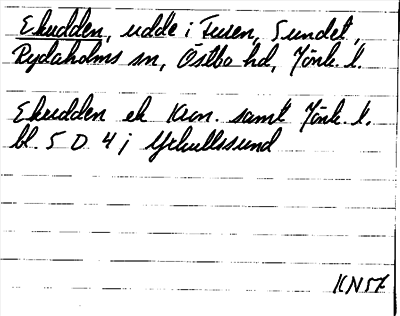 Ekudden, udde i Furen, Sundet,
Rydaholms sn, Östbo hd, Jönk. l.
Ekudden ek Kron. samt Jönk. l.
bl. 5 D 4 j Yxkullssund
KN57